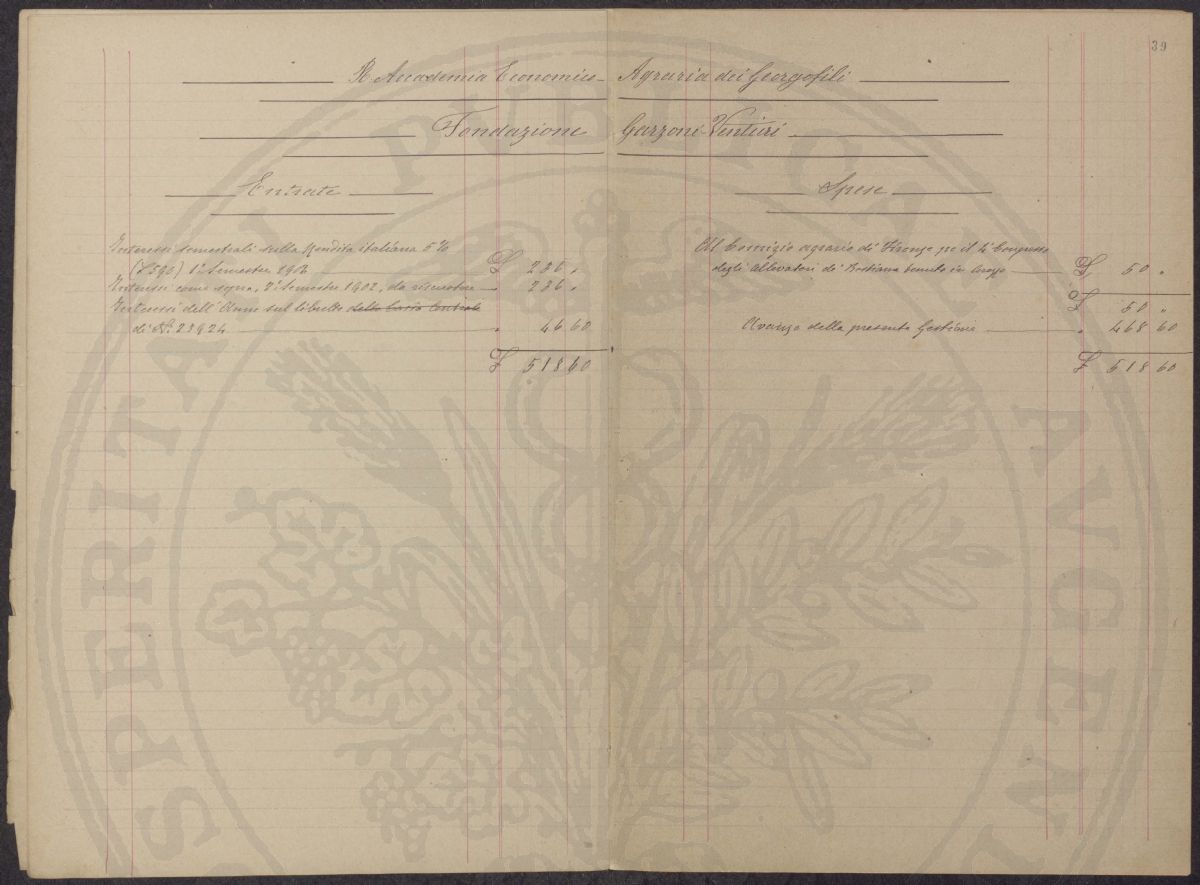 39
R. Accademia Economico-Agraria dei Georgofili
Fondazione Garzoni Venturi
Entrate
Interessi semestrali sulla Rendita italiana 5%
(L 590) 1° Semestre 1902 £ 236 "
Interessi come sopra, 2° Semestre 1902, da riscuotere " 236 "
Interessi dell'Anno sul libretto della Cassa Centrale
di N.° 23924 " 46 60
£ 518 60
Spese
Al Comizio agrario di Firenze pe il 4° Congresso
degli Allevatori di tenuto in £ 50 "
£ 50 "
Avanzo della presente Gestione " 468 60
£ 518 60
PROSPERITATI PVBLICAE AVGENDAE